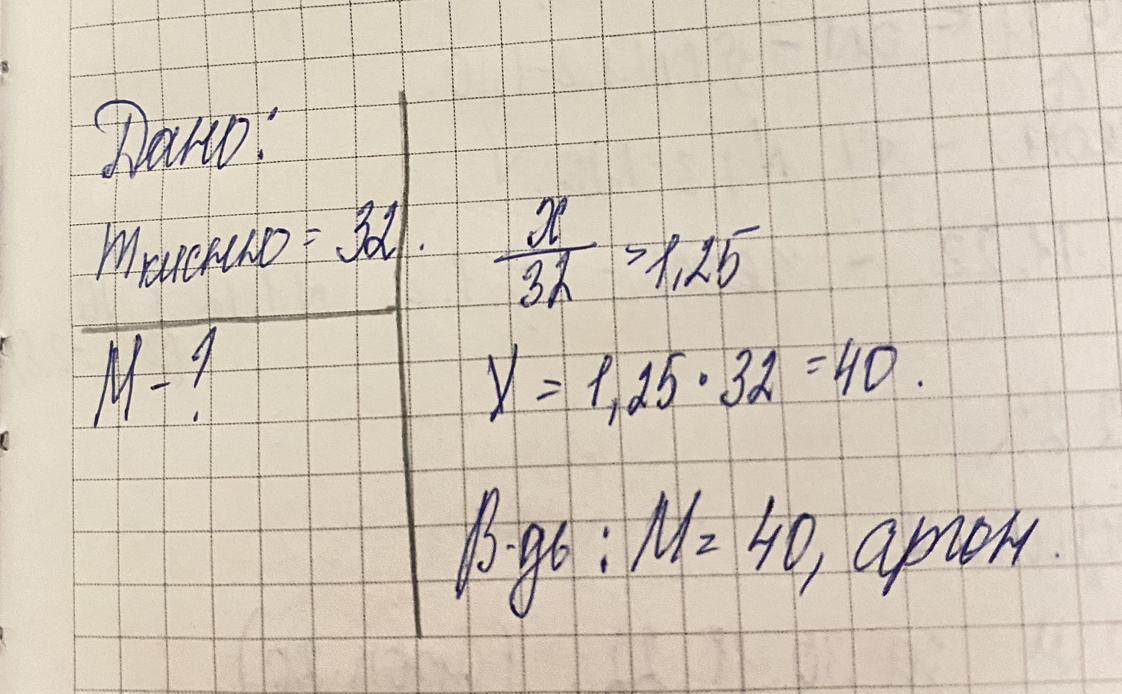 Дано:
m кисню = 32.
M - ?
x/32 = 1,25
X = 1,25 · 32 = 40.
В-дь: M = 40, аргон.